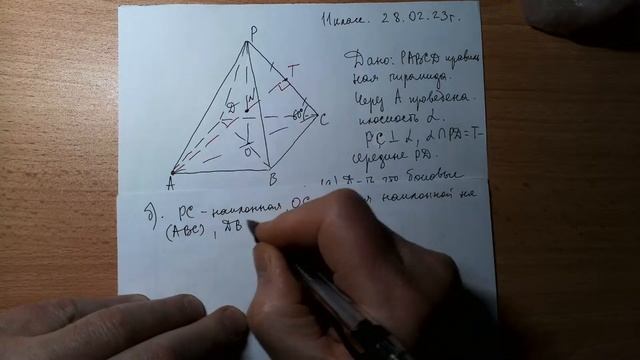 11 класс. 28.02.23г.
P
T
N
D
60°
C
O
A
B
Дано: PABCD правиль
ная пирамида.
Через A проведена
плоскость α.
PC ⊥ α, α ∩ PD = T-
середине PD.
боковые
б). PC - наклонная, OC наклонной на
(ABC), DB